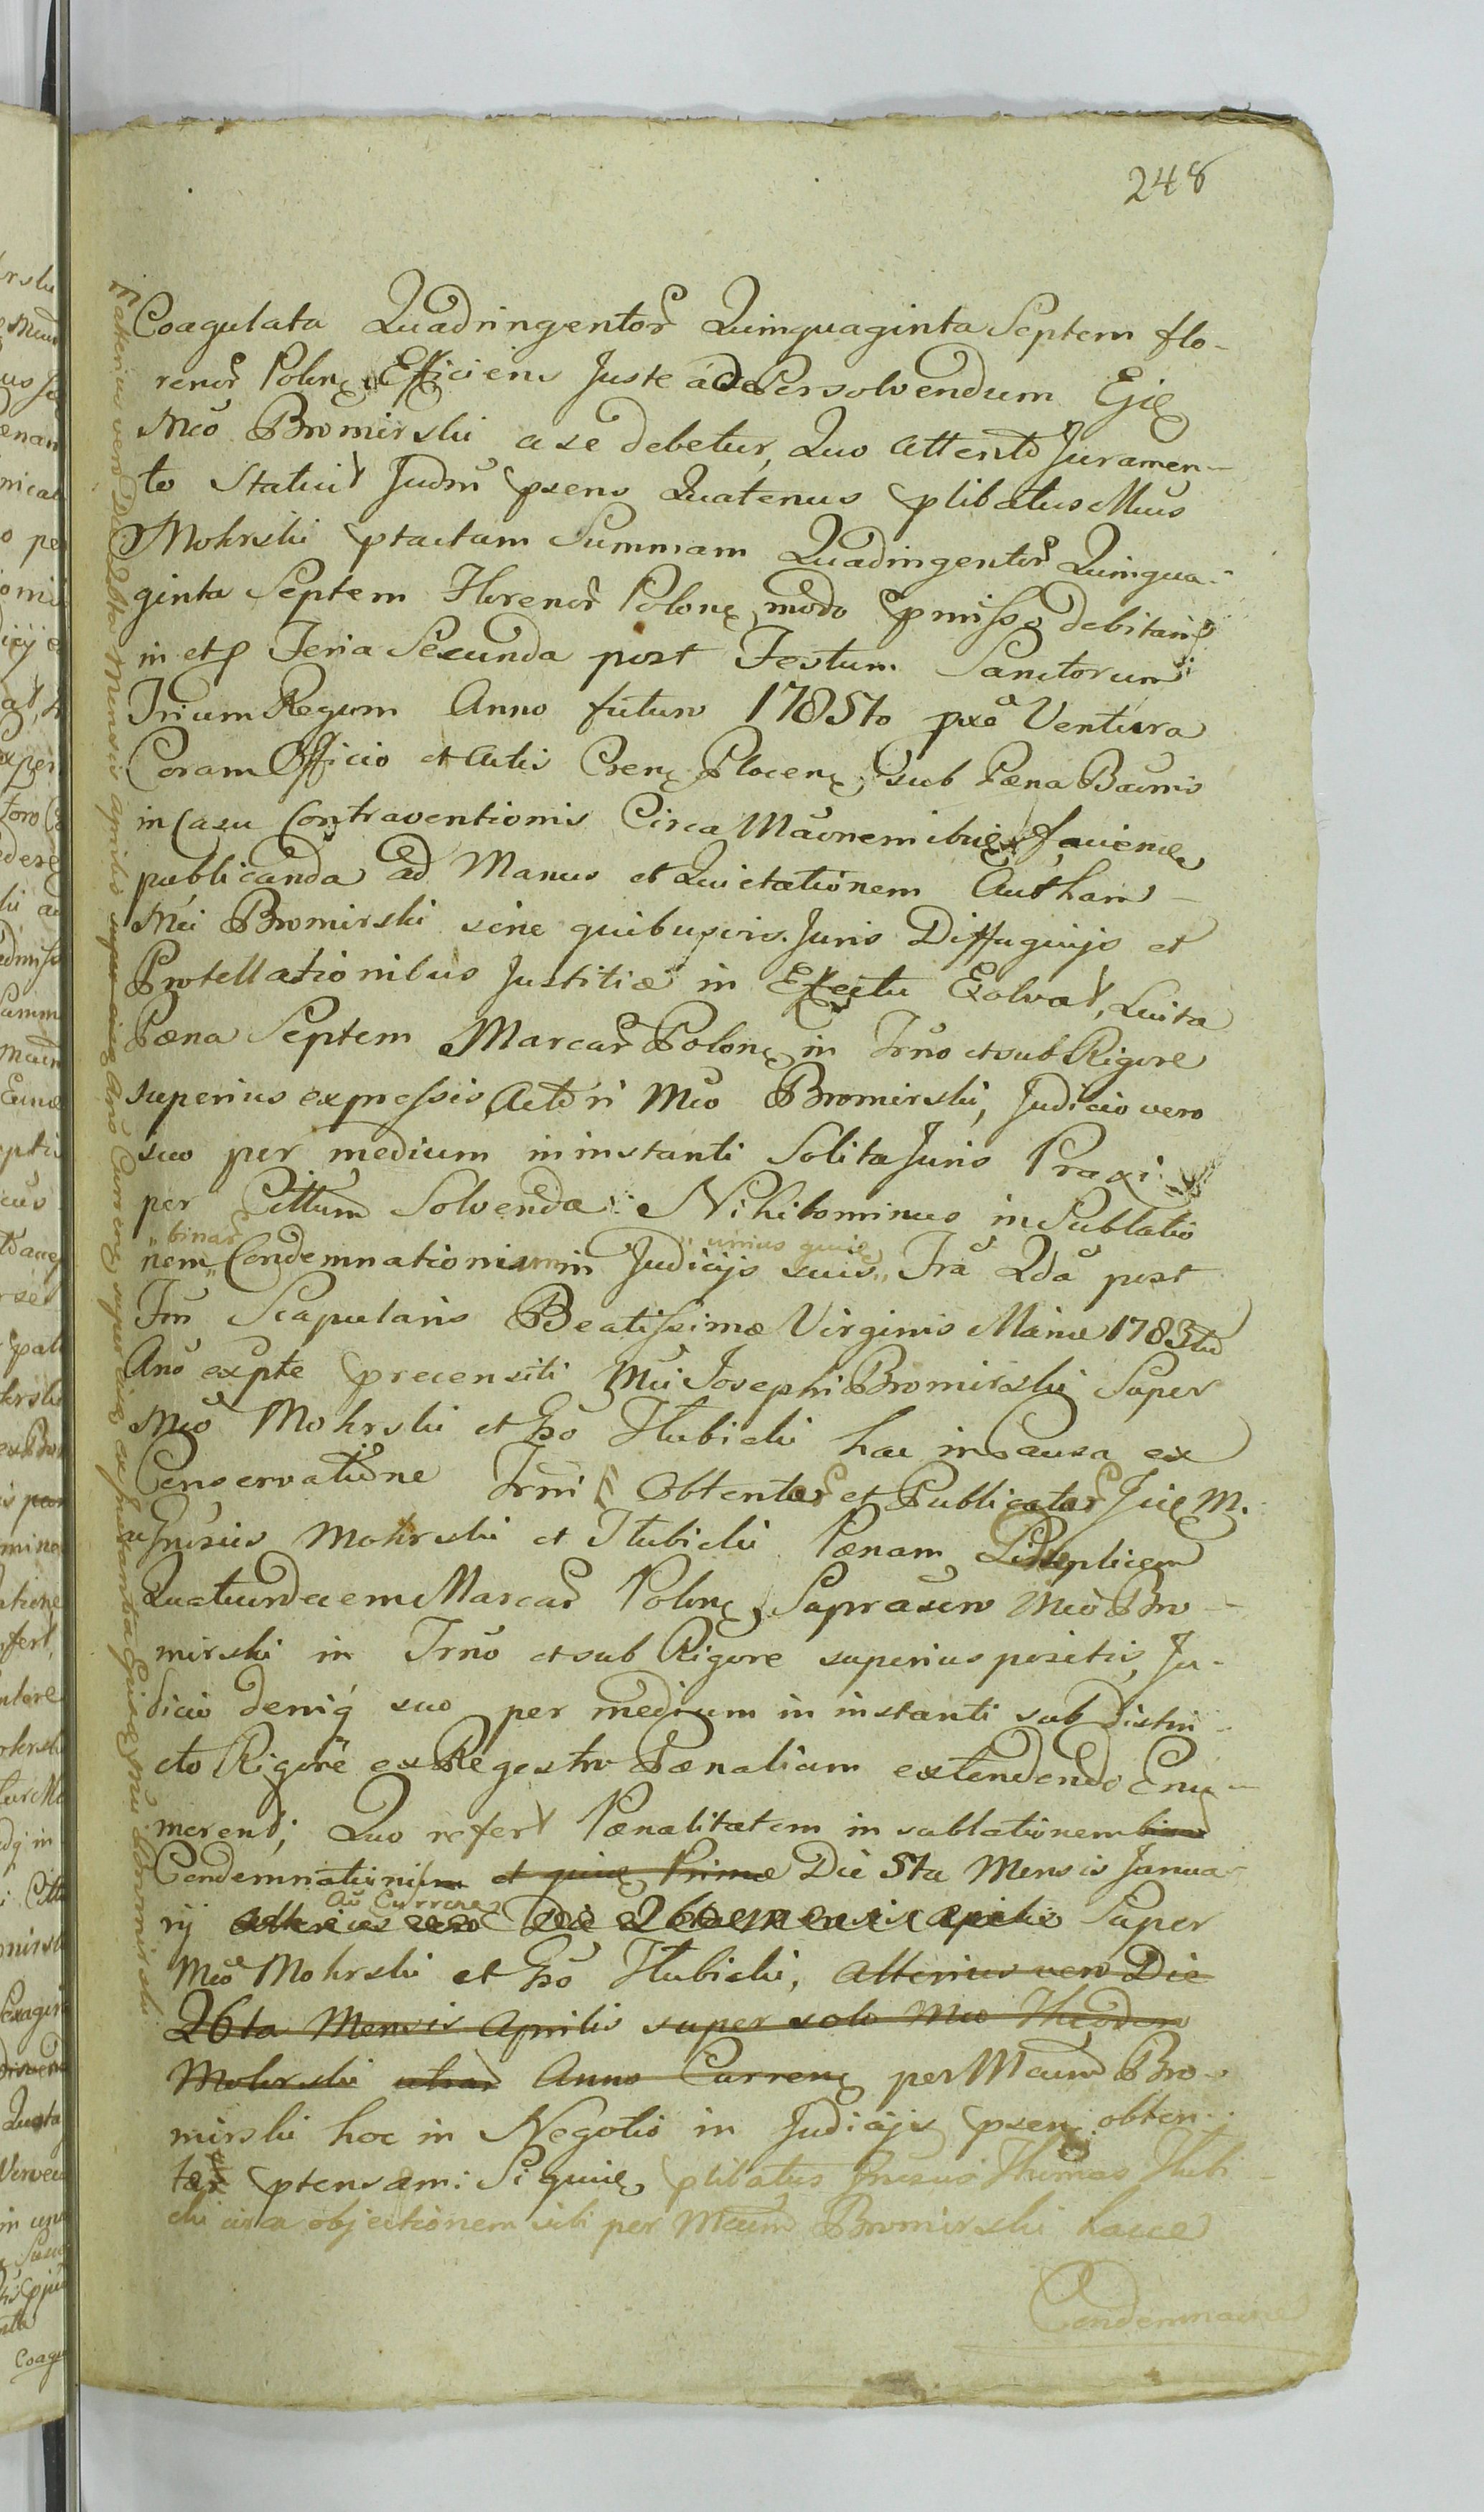 248
Coagulata Quadringentor Quinquaginta Septem flo-
renor Polon Efficiens Juste ad Persolvendum Ejq
Mco Bromirski a se debetur, Quo attento Juramen-
to Statuit Judm psens Quatenus plibatus Mcus
Mohrski ptactam Summam Quadringentor Quinqua-
ginta Septem Florenor Polon modo pmisso debitam
in et p Feria Secunda post Festum Sanctorum
Trium Regum Anno futuro 1785to pxe Ventura
Coram Officio et Actis Cren Plocen, sub Pæna Bannis
in Casu Contraventionis Circa
publicanda ad Manus et Quietationem Autham
Mci Bromirski sine quibusvis Juris Diffugiijs et
Protellationibus Justitiæ in Effectu Exolvat, Luita
Pæna Septem Marcar Polon in Trno et sub Rigore
superius expressis Actori Mco Bromirski, Judicio vero
suo per medium in instanti Solita Juris Praxi
per Cittum Solvenda. Nihilominus in Sublatio
"binar "unius quiq
nem" Condemnationum in Judicijs suis" Fra 2da post
Fm Scapularis Beatissimæ Virginis Mariæ 1783tio
Ano expte precensiti Mci Josephi Bromirski Super
Mco Mohrski et Gso Hubicki hac in Causa ex
Conservatione Trni Obtentar et Publicatar Jiiq M.
ac Gnrosus Mohrski et Hubicki Pænam Duplicem
Quatuordecem Marcar Polon Suprascro Mco Bro-
mirski in Trno et sub Rigore superius positis, Ju-
dicio deniq suo per medium in instanti sub distri-
cto Rigore ex Regestro Pænalium extendendo Enu-
merent; Quo refert Pænalitatem in sublationem
Condemnationum et quiq Primæ Die 5ta Mensis Janua-
Au Curren
rij alterius vero Die 26ta Mensis Aprilis Super
Mco Mohrski et Gso Hubicki, alterius vero Die
26ta Mensis Aprilis super solo Mco Theodoro
Mohrski utrar Anno Curren per Mcum Bro-
mirski hoc in Negotio in Judicijs psen obten-
tar ptensam: Si quiq plibatus Gnrosus Thomas Hubi-
cki circa objectionem sibi per Mcum Bromirski hacce
Condemnaone
Alterius vero Die 26ta Mensis Aprilis super Ano Curren super